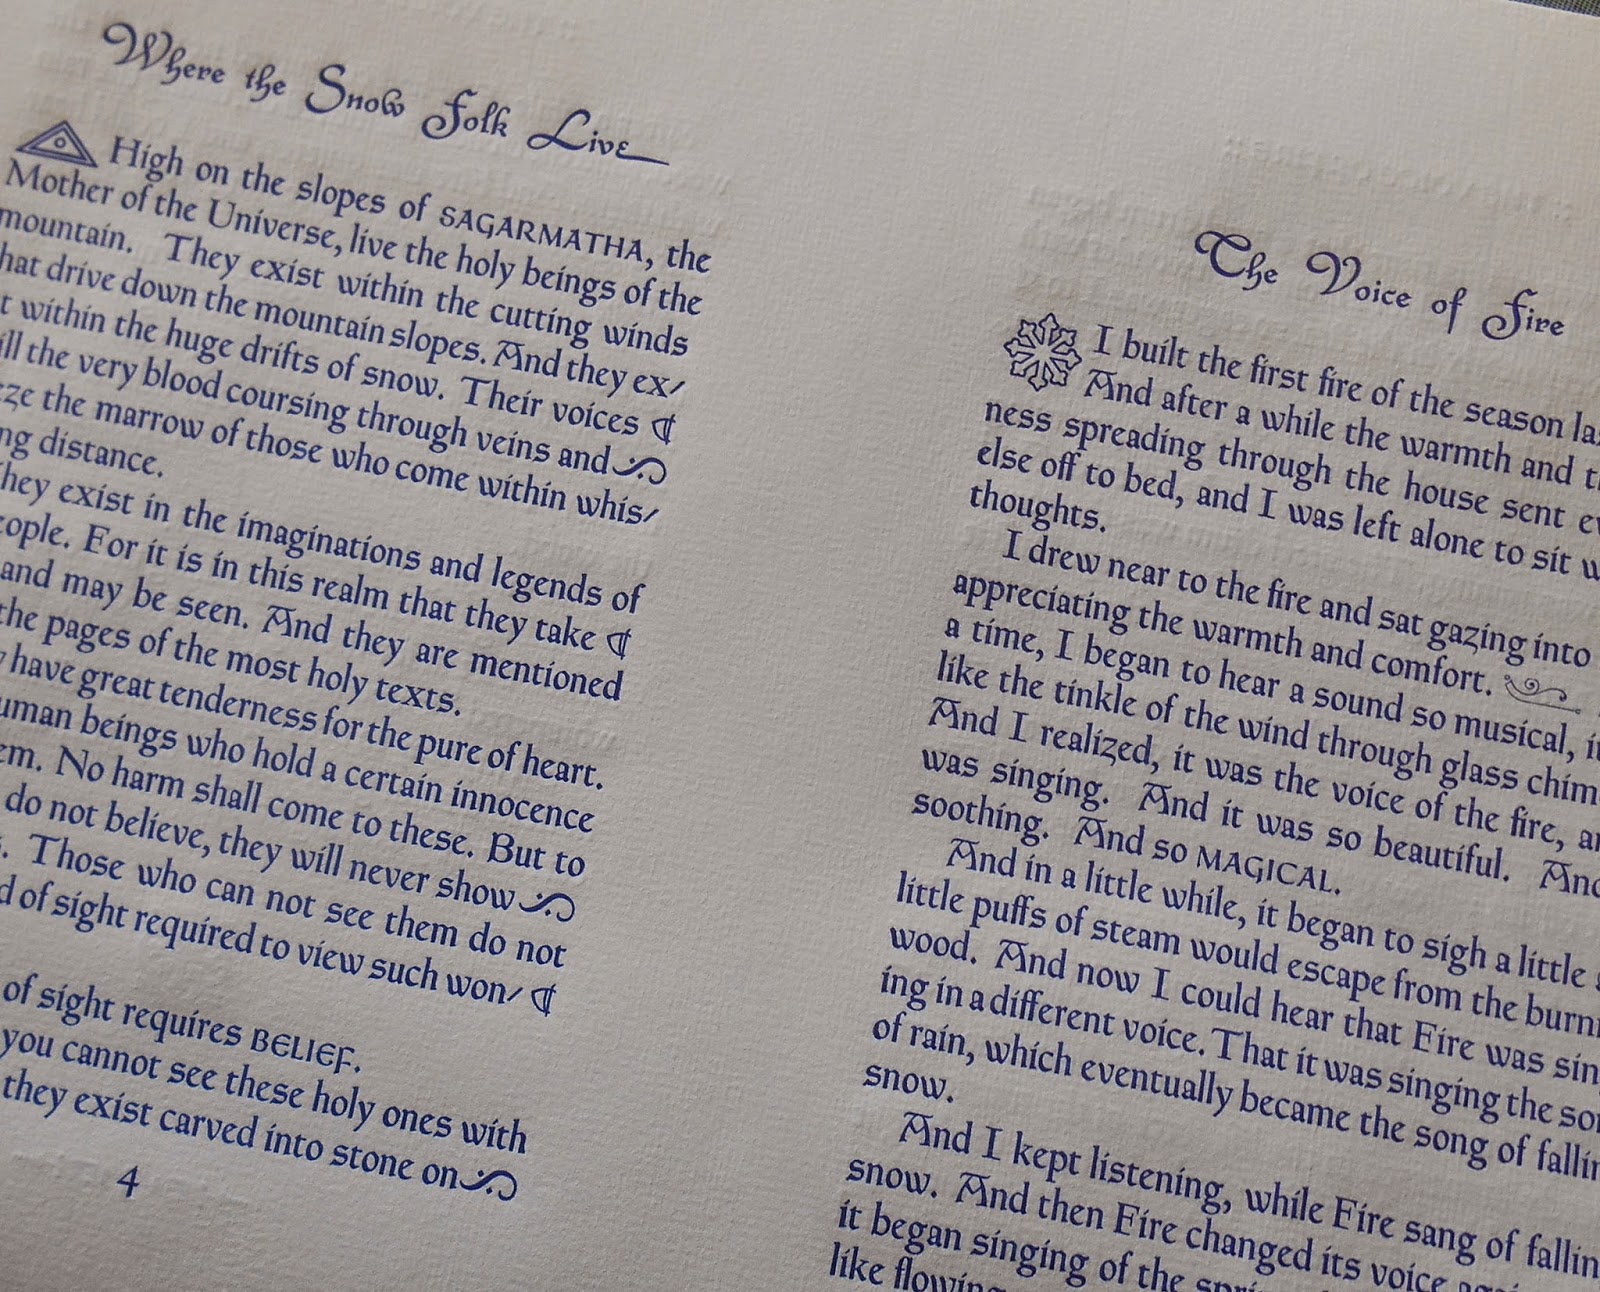 Where the Snow Folk Live
High on the slopes of SAGARMATHA, the
Mother of the Universe, live the holy beings of the
mountain. They exist within the cutting winds
hat drive down the mountain slopes. And they ex/
t within the huge drifts of snow. Their voices
ill the very blood coursing through veins and
eze the marrow of those who come within whis/
ng distance.
hey exist in the imaginations and legends of
eople. For it is in this realm that they take
and may be seen. And they are mentioned
the pages of the most holy texts.
y have great tenderness for the pure of heart.
uman beings who hold a certain innocence
em. No harm shall come to these. But to
do not believe, they will never show
. Those who can not see them do not
d of sight required to view such won/
of sight requires BELIEF.
you cannot see these holy ones with
they exist carved into stone on
4
The Voice of Fire
I built the first fire of the season las
And after a while the warmth and t
ness spreading through the house sent ev
else off to bed, and I was left alone to sit w
thoughts.
I drew near to the fire and sat gazing into
appreciating the warmth and comfort.
a time, I began to hear a sound so musical, i
like the tinkle of the wind through glass chim
And I realized, it was the voice of the fire, a
was singing. And it was so beautiful. And
soothing. And so MAGICAL.
And in a little while, it began to sigh a little
little puffs of steam would escape from the burni
wood. And now I could hear that Fire was sin
ing in a different voice. That it was singing the so
of rain, which eventually became the song of fallin
snow.
And I kept listening, while Fire sang of fallin
snow. And then Fire changed its voice again
it began singing of the spri
like flowing